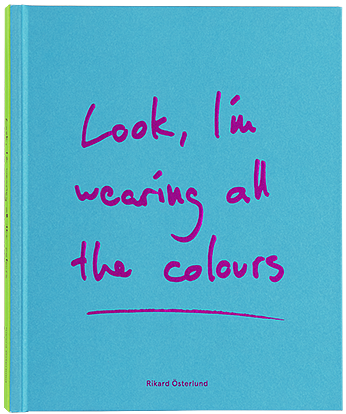 Look, I'm
wearing all
the colours
Rikard Österlund